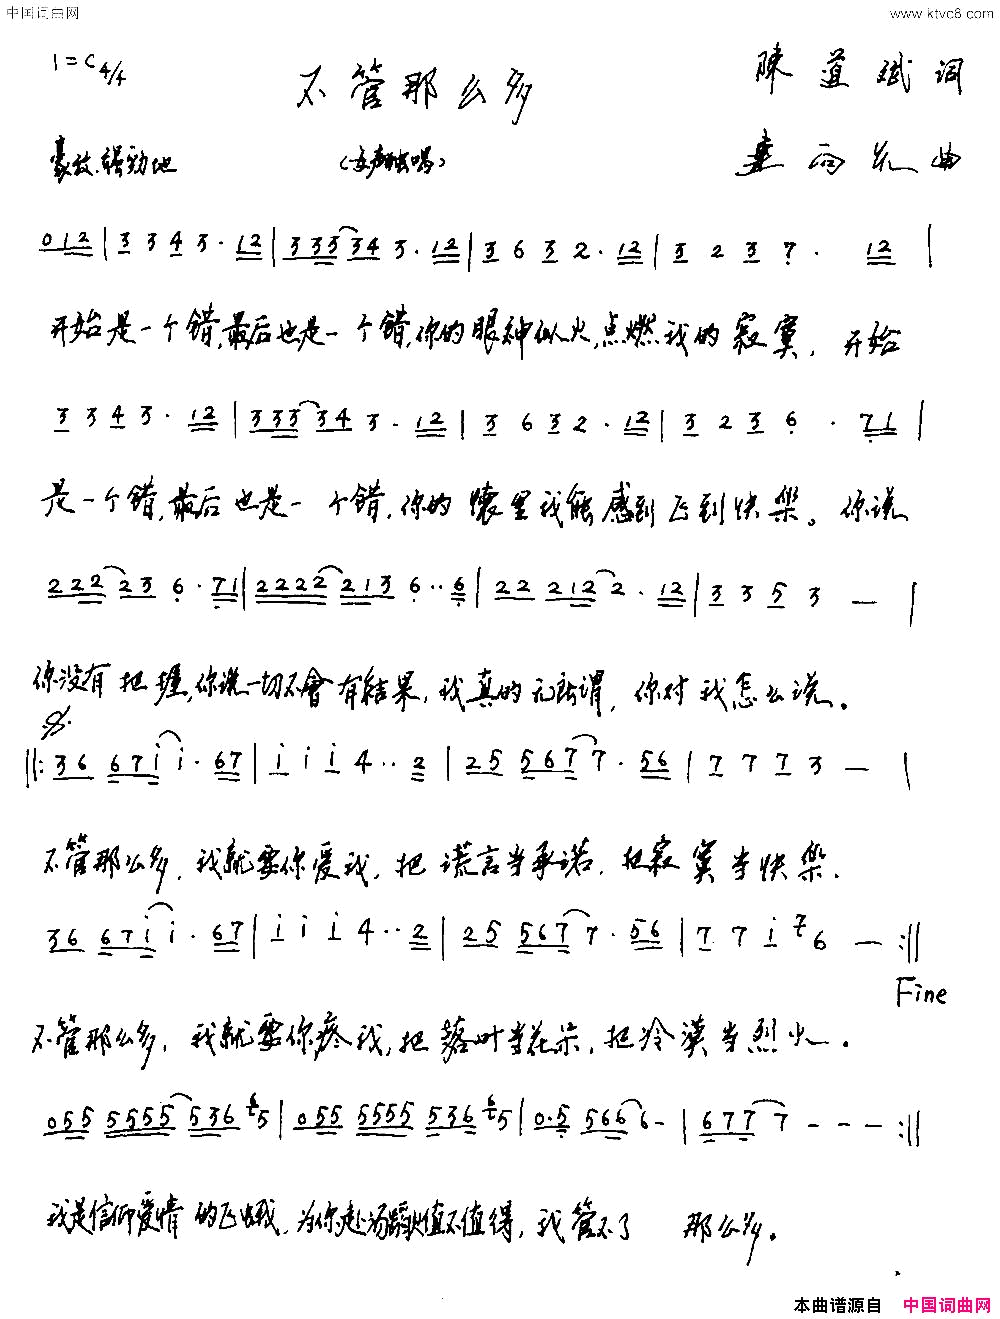 中国词曲网 www.ktvc8.com
1=C 4/4
不管那么多
陳道斌词
豪放、强劲地 (女声独唱)
曲
0 1 2 | 3 3 4 3 · 1 2 | 3 3 3 3 4 3 · 1 2 | 3 6 3 2 · 1 2 | 3 2 3 7 · 1 2 |
开始是一个错,最后也是一个错,你的眼神似火,点燃我的寂寞, 开始
3 3 4 3 · 1 2 | 3 3 3 3 4 3 · 1 2 | 3 6 3 2 · 1 2 | 3 2 3 6 · 7 1 |
是一个错,最后也是一个错,你的懷里我能感到飞到快樂。你说
2 2 2 2 3 6 · 7 1 | 2 2 2 2 2 1 3 6 ·· 6 | 2 2 2 1 2 2 · 1 2 | 3 3 5 3 — |
你没有把握,你说一切不會有结果,我真的无所谓,你对我怎么说。
||: 3 6 6 7 i i · 6 7 | i i i 4 ·· 2 | 2 5 5 6 7 7 · 5 6 | 7 7 7 3 — |
不管那么多,我就要你爱我,把谎言当承诺,把寂寞当快樂.
3 6 6 7 i i · 6 7 | i i i 4 ·· 2 | 2 5 5 6 7 7 · 5 6 | 7 7 i 7 6 — :||
Fine
不管那么多,我就要你疼我,把落叶当花朵,把冷漠当烈火.
0 5 5 5 5 5 5 5 3 6 6 5 | 0 5 5 5 5 5 5 5 3 6 6 5 | 0 · 5 5 6 6 6 - | 6 7 7 7 - - - :||
我是信仰爱情的飞蛾,为你赴汤蹈火值不值得,我管不了 那么多。
本曲谱源自 中国词曲网